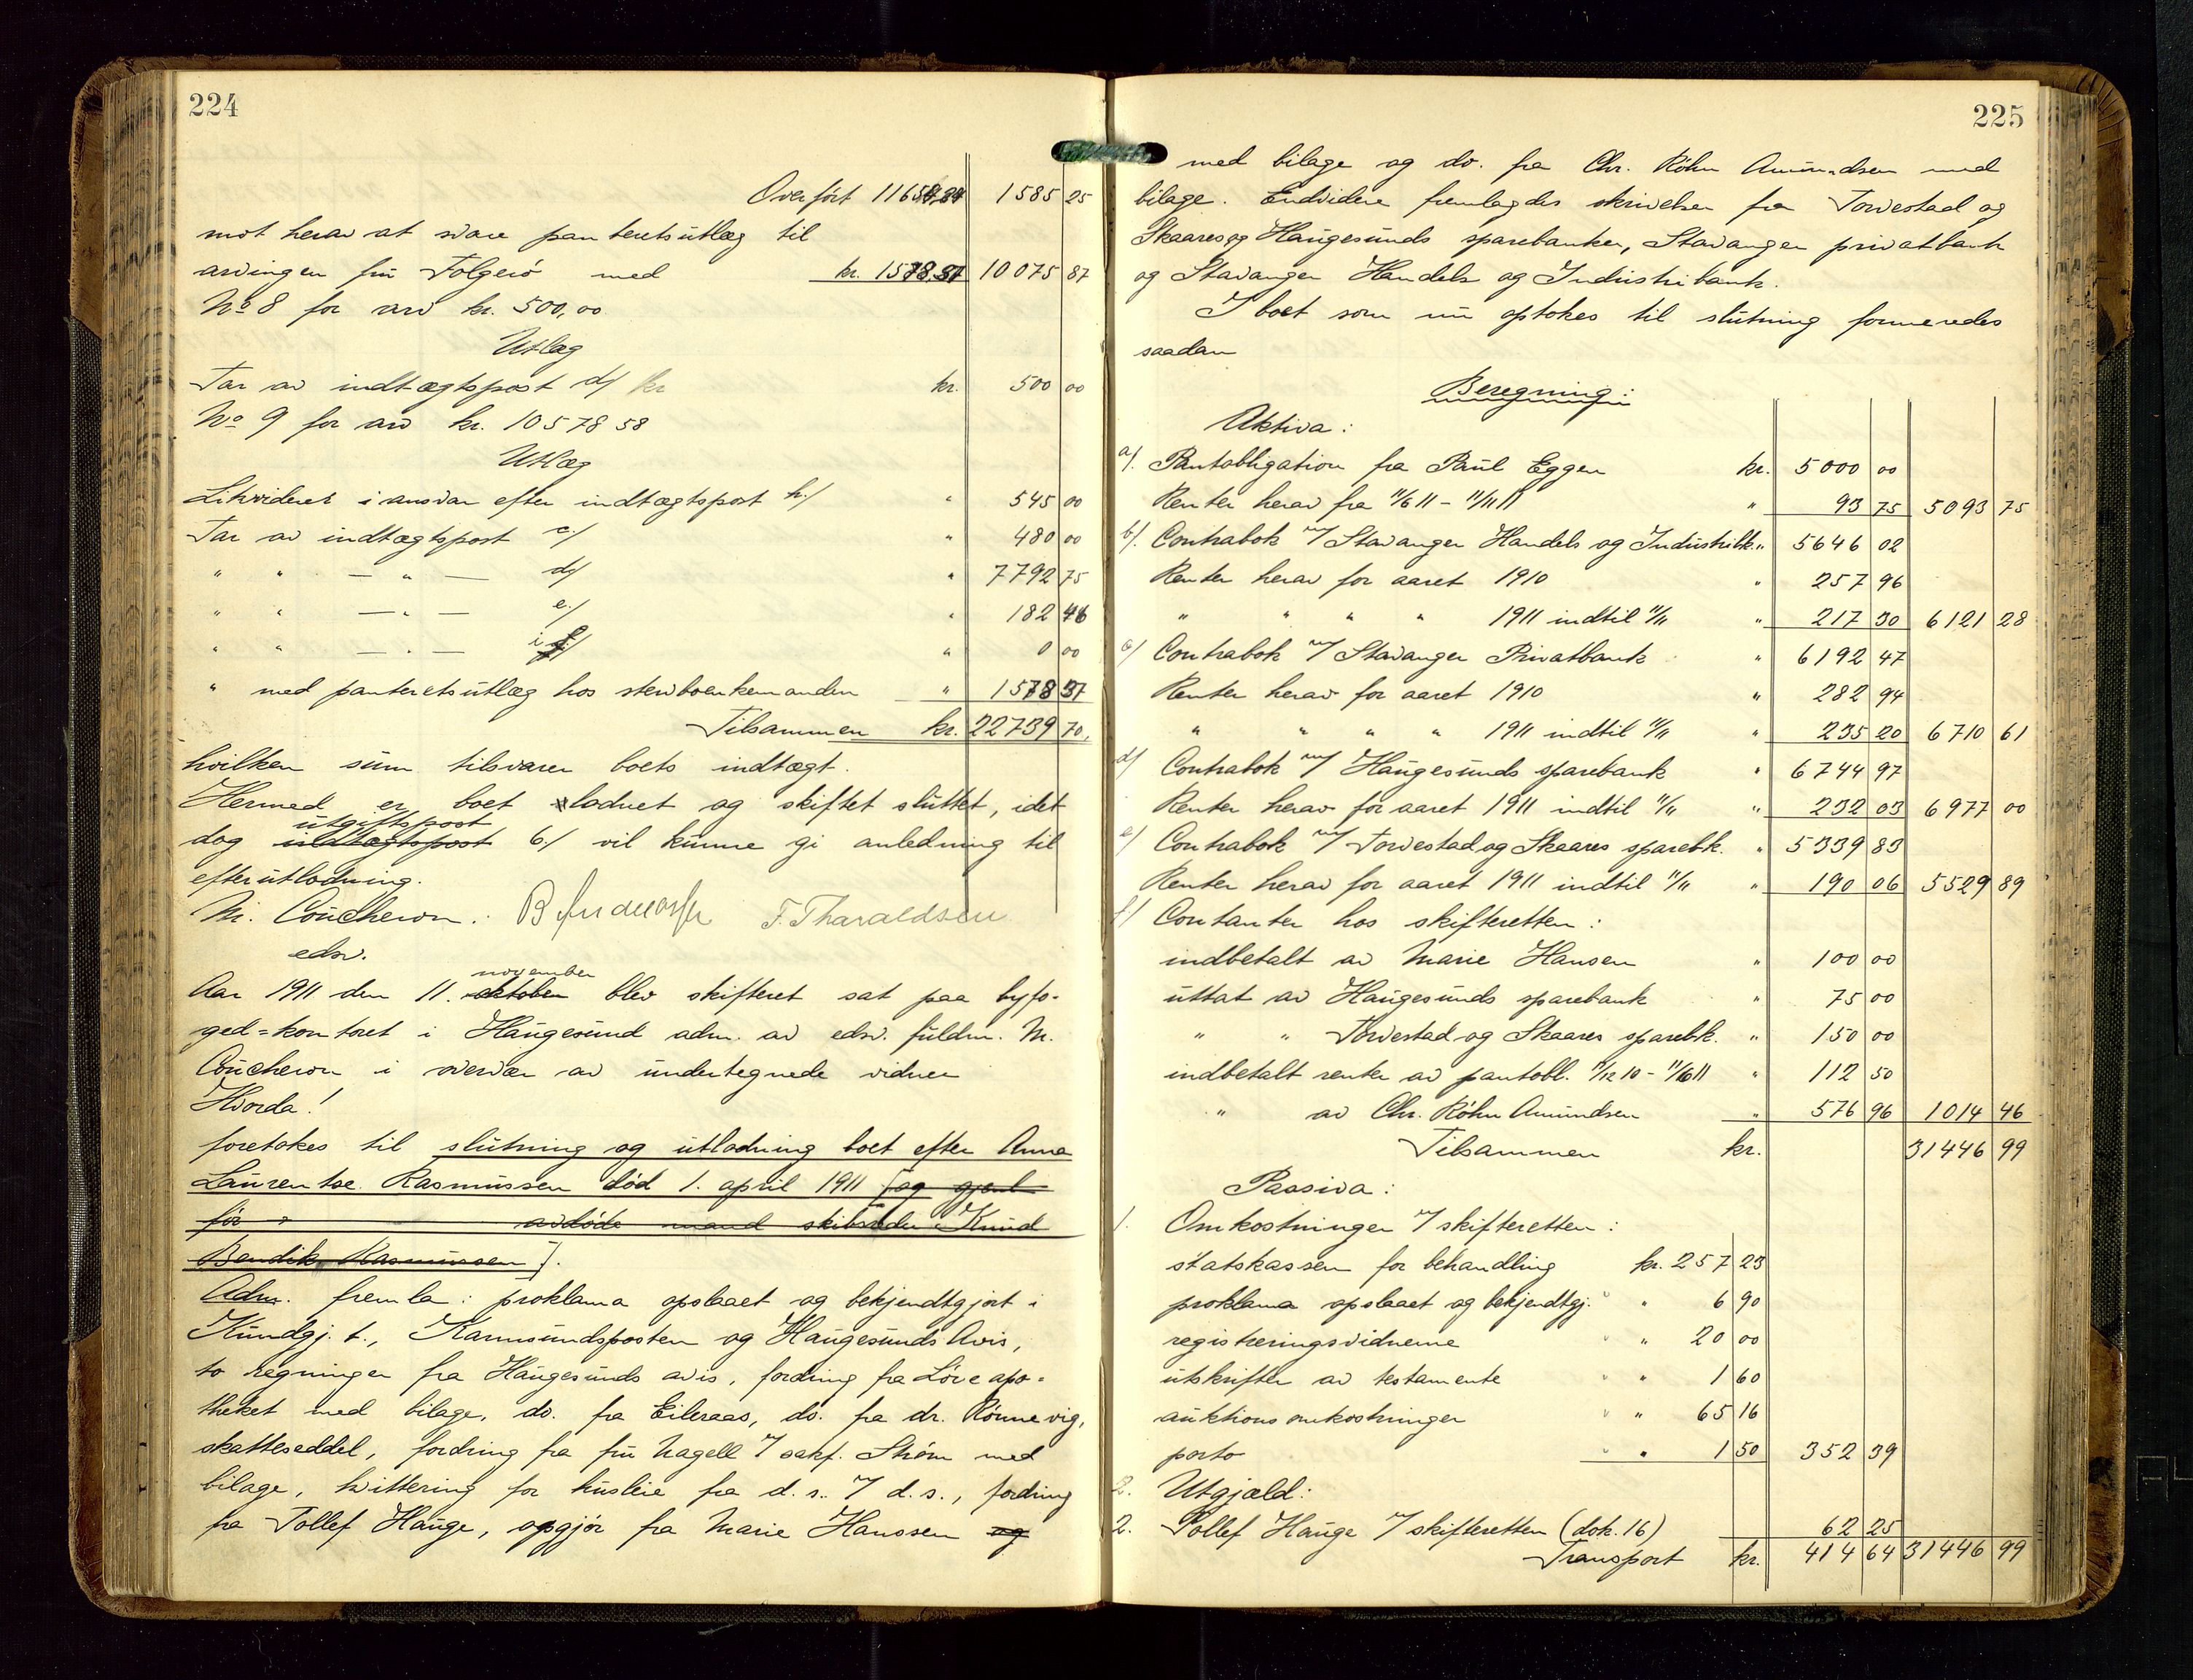 224
Overført 11654,24 1585 25
mot herav at svare panteretsutlæg til
arvingen fru Folgerö med kr. 1578,37 10075 87
No 8 for arv kr. 500,00
Utlæg
Tar av indtægtspost d/ kr kr. 500 00
No 9 for arv kr. 10578 58
Utlæg
Likvideret i ansvar efter indtægtspost h./ " 545 00
Tar av indtægtspost c/ " 480 00
" " — " — d/ " 7792 75
" " — " — e./ " 182 46
" " — " — i / " 0 00
" med panteretsutlæg hos stervboenkemanden " 1578 37
Tilsammen kr. 22739 70.
hvilken sum tilsvarer boets indtægt.
Hermed er boet utlodnet og skiftet sluttet, idet
utgiftspost
dog indtægtspost b./ vil kunne gi anledning til
efterutlodning.
M. Coucheron. F. Tharaldsen
edsv.
november
Aar 1911 den 11. oktober blev skifteret sat paa byfo-
ged=kontoret i Haugesund adm. av edsv. fuldm. M.
Coucheron i overvær av undertegnede vidner
Hvorda!
foretokes til slutning og utlodning boet efter Anna
Laurentse Rasmussen död 1. april 1911 [og gjenl
før " avdöde mand skibsreder Knud
Bendik Rasmussen].
Adm. fremla: proklama opslaaet og bekjendtgjort i
Kundgj. t., Karmsundsposten og Haugesunds Avis,
to regninger fra Haugesunds avis, fordring fra Löveapo=
theket med bilage, do. fra Eileraas, do. fra dr. Rönnevig,
skatteseddel, fordring fra fru Nagell 7 sakf. Ström med
bilage, kvittering for husleie fra d. s. 7 d. s., fordring
fra Tollef Hauge, opgjör fra Marie Hanssen og
225
med bilage og do. fra Chr. Röhn Amundsen med
bilage. Endvidere fremlagdes skrivelser fra Torvestad og
Skaares og Haugesunds sparebanker, Stavanger privatbank
og Stavanger Handels og Industribank.
I boet som nu optokes til slutning formeredes
saadan
Beregning:
Aktiva:
a/. Pantobligation fra Paul Eggen kr. 5000 00
Renter herav fra 11/6 11 - 11/11 11 " 93 75 5093 75
b/. Contrabok m/ Stavanger Handels og Industribk. " 5646 02
Renter herav for aaret 1910 " 257 96
" " " " 1911 indtil 11/11 " 217 30 6121 28
c/ Contrabok m/ Stavanger Privatbank " 6192 47
Renter herav for aaret 1910 " 282 94
" " " " 1911 indtil 11/11 " 235 20 6710 61
d/ Contrabok m/ Haugesunds sparebank " 6744 97
Renter herav for aaret 1911 indtil 11/11 " 232 03 6977 00
e/ Contrabok m/ Torvestad og Skaares sparebk. " 5339 83
Renter herav for aaret 1911 indtil 11/11 " 190 06 5529 89
f/ Contanter hos skifteretten:
indbetalt av Marie Hansen " 100 00
uttat av Haugesunds sparebank " 75 00
" " Torvestad og Skaares sparebk. " 150 00
indbetalt renter av pantobl. 11/12 10 - 11/6 11 " 112 50
" av Chr. Röhn Amundsen " 576 96 1014 46
Tilsammen kr. 31446 99
Passiva:
1. Omkostninger 7 skifteretten:
statskassen for behandling kr. 257 23
proklama opslaaet og bekjendtgj. " 6 90
registreringsvidnerne " 20 00
utskrifter av testamente " 1 60
auktionsomkostninger " 65 16
porto " 1 50 352 39
2. Utgjæld:
2. Tollef Hauge 7 skifteretten (dok. 16) 62 25
Transport kr. 414 64 31446 99